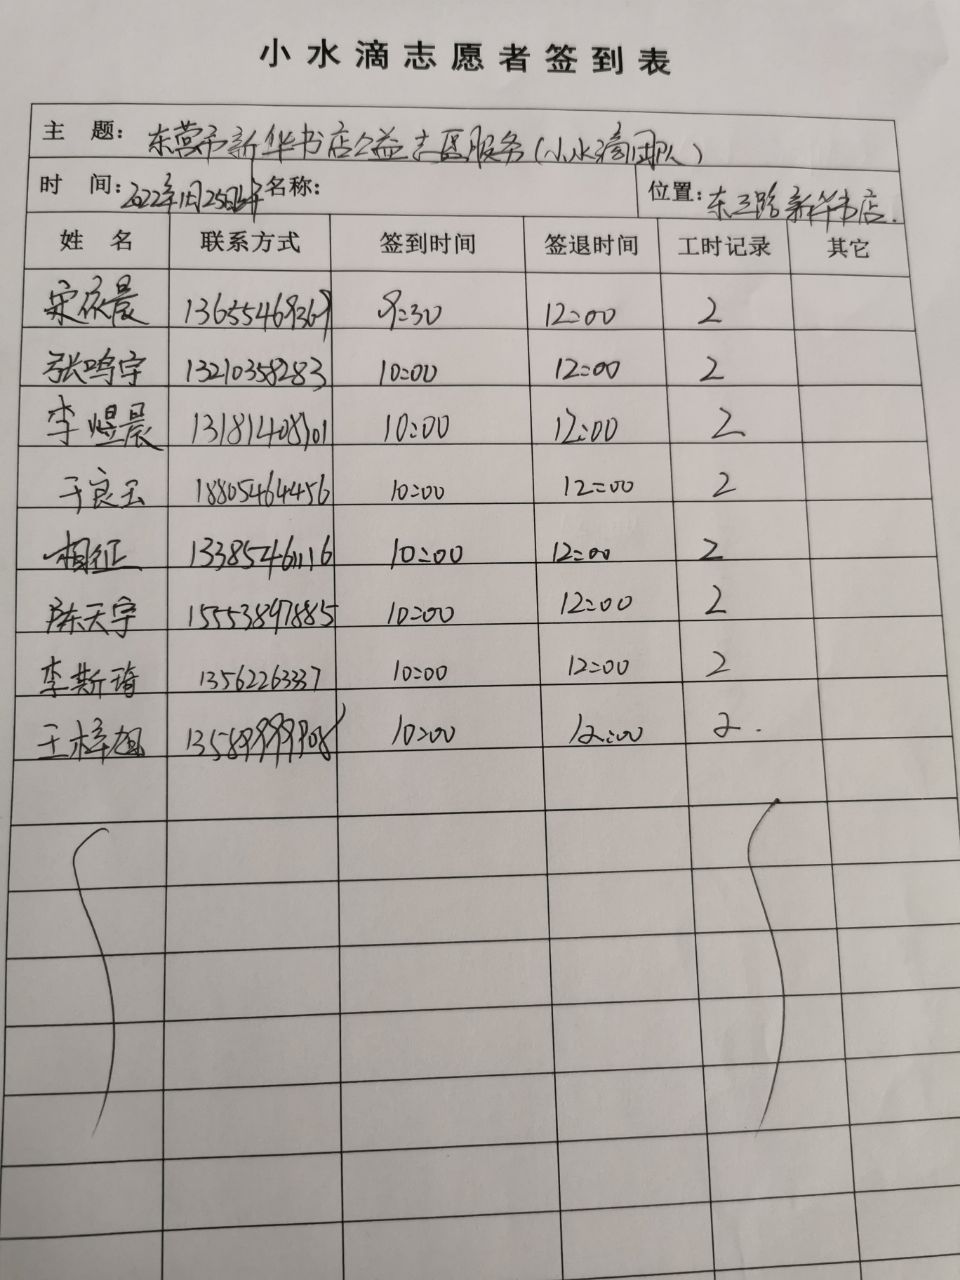 小水滴志愿者签到表
主 题: 东营市新华书店公益志愿服务(小水滴团队)
时 间: 2022年1月25日 名称: 位置: 东三路新华书店.
姓 名 联系方式 签到时间 签退时间 工时记录 其它
宋依晨 13655469369 9:30 12:00 2
张鸣宇 13210358283 10:00 12:00 2
李煜晨 13181408701 10:00 12:00 2
于良玉 18805464456 10:00 12:00 2
相征 13385461116 10:00 12:00 2
陈天宇 15553897885 10:00 12:00 2
李斯琦 13562263337 10:00 12:00 2
王梓旭 10:00 12:00 2.